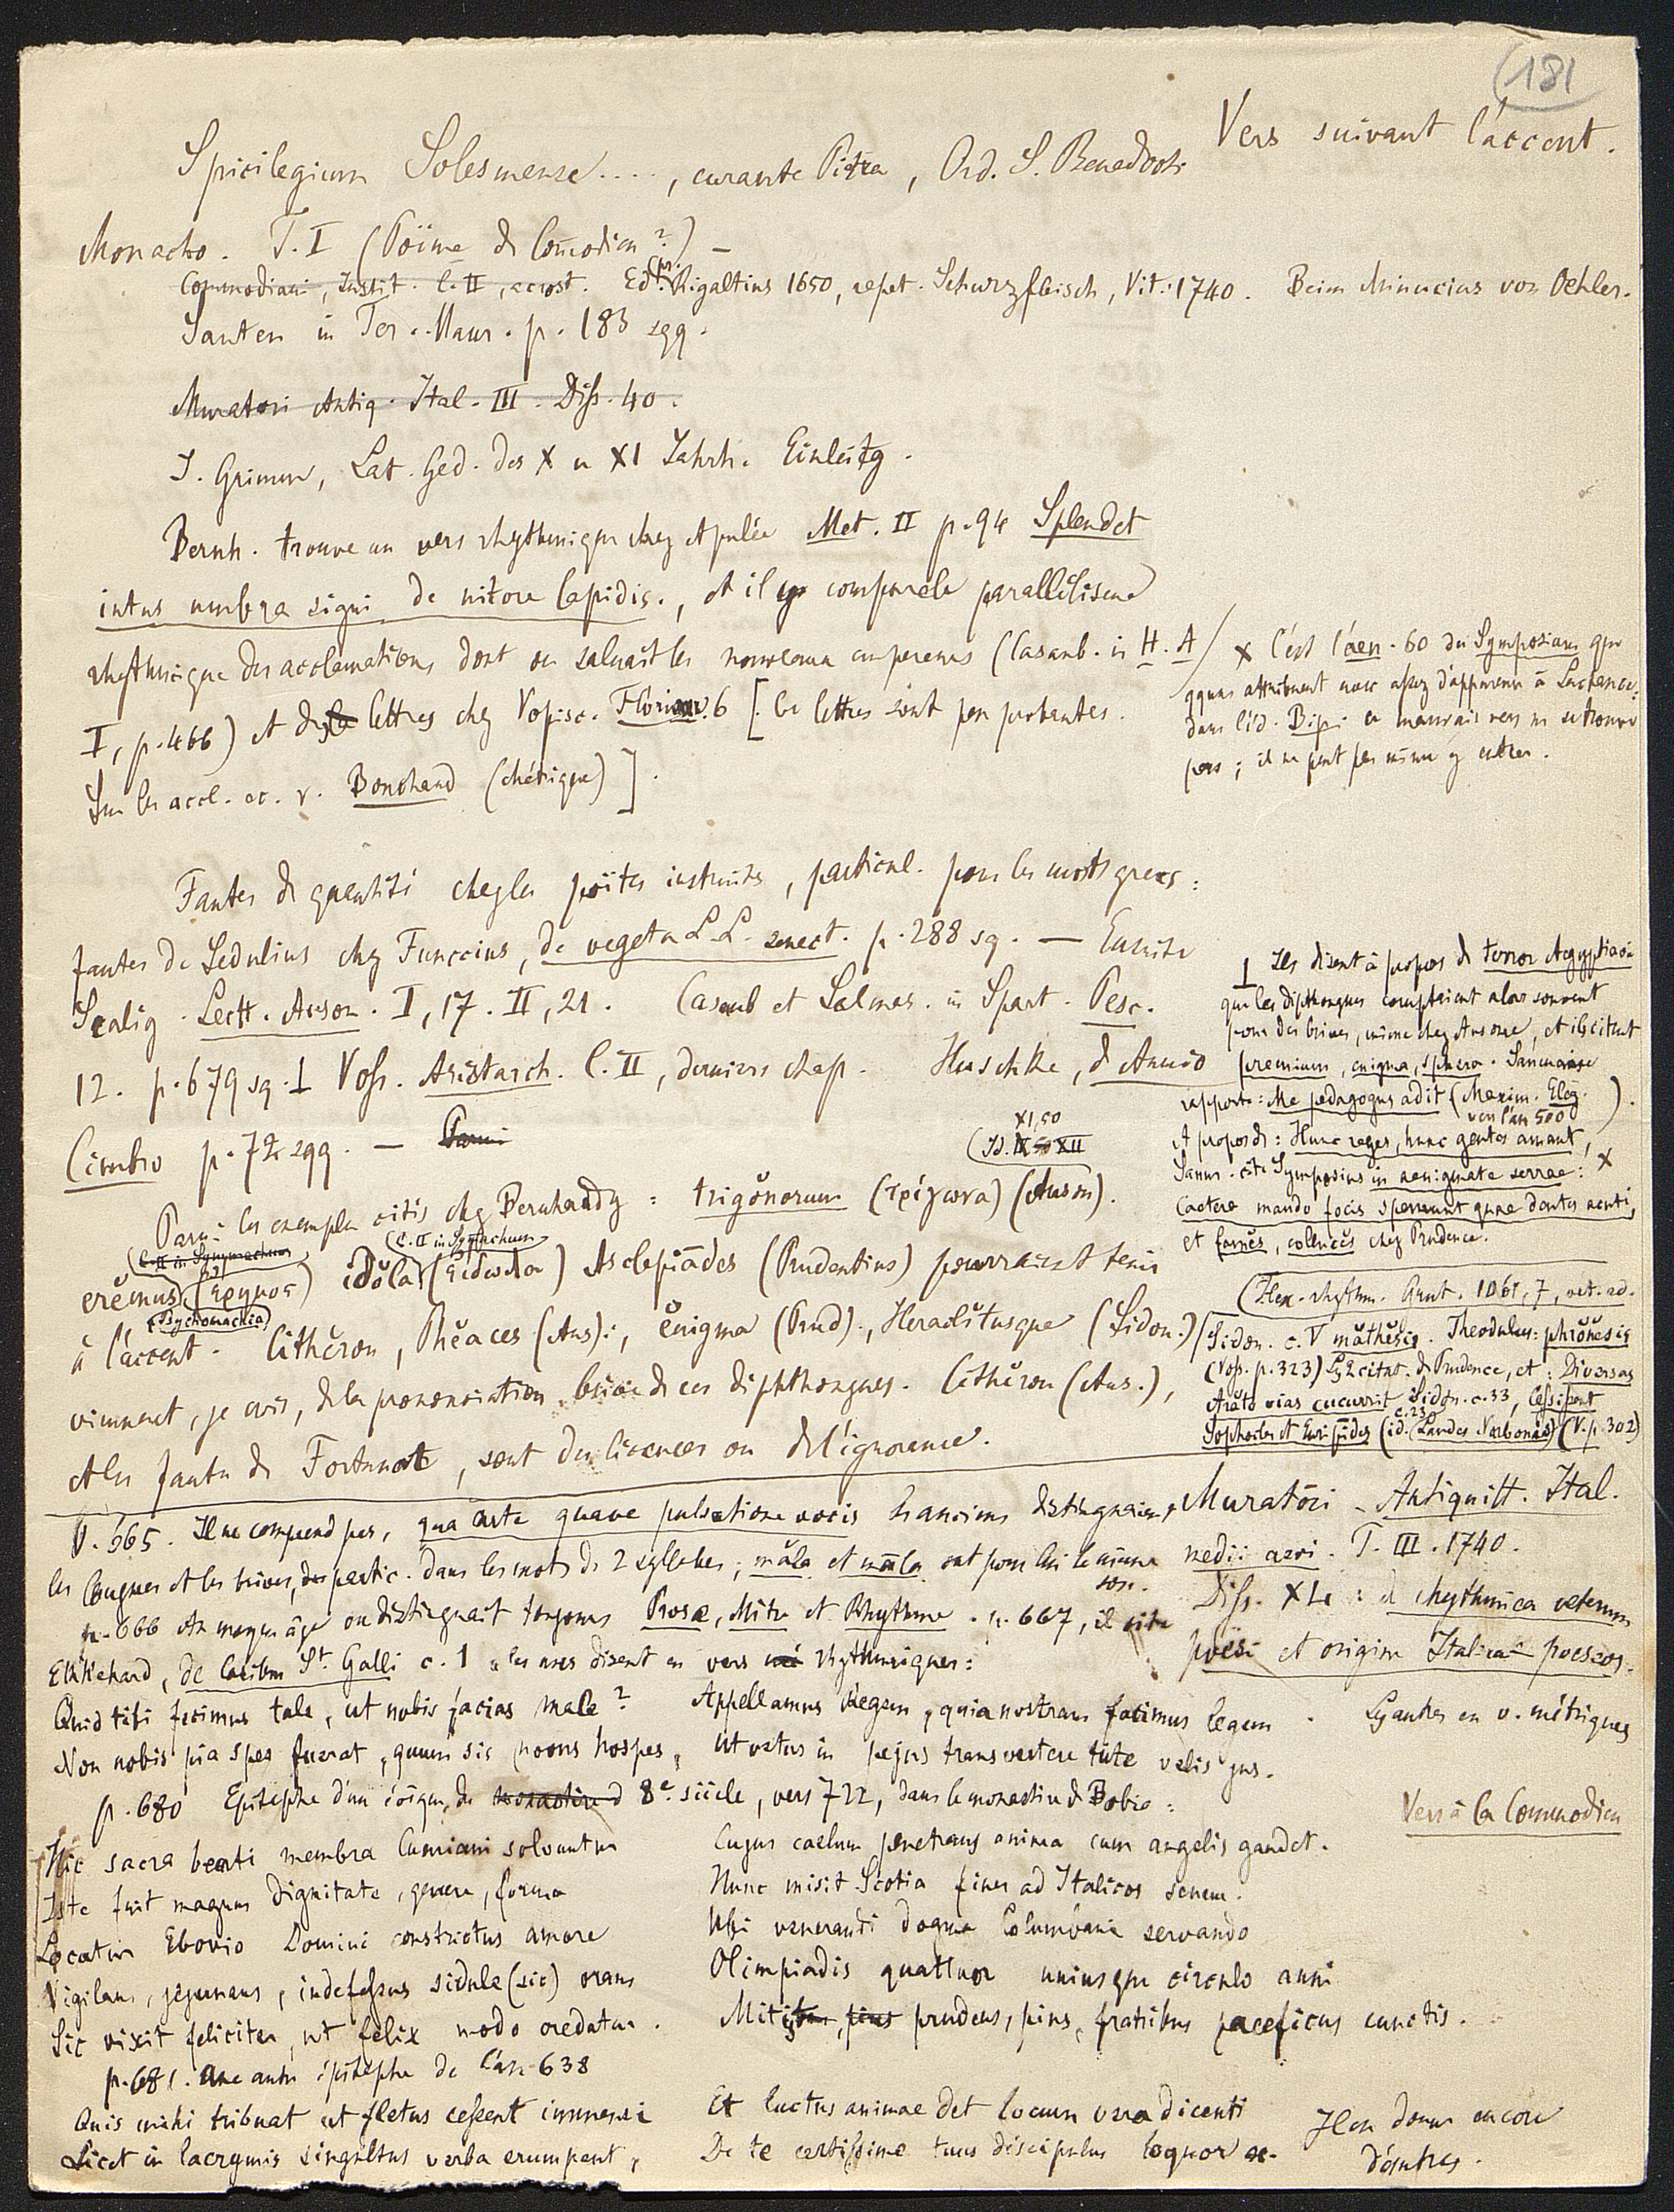 (181
Vers suivant l'accent.
Spicilegium Solesmense...., curante Pitra, Ord. S. Benedicti
Monacho. T. I (Poëme de Comodien?) –
Commodiani, Instit. l. II, acrost. Ed. pr. Rigaltius 1650, repet. Schurzfleisch, Vit. 1740. Beim Minucius von Oehler.
Santen in Ter. Maur. p. 183 sqq.
Muratori Antiq. Ital. III. Diss. 40.
J. Grimm, Lat. Ged. des X u XI Jahrh. Einleitg.
Bernh. trouve un vers rhythmique chez Apulée Met. II p. 94 Splendet
intus umbra signi de nitore lapidis., et il y compare le parallélisme
rhythmique des acclamations dont on saluait les nouveaux empereurs (Casaub. in H. A
I, p. 466) et des lettres chez Vopisc. Florian. 6 [. Ces lettres sont peu probantes.
Sur les accl. ec. v. Bonchaud (chétique)].
x C'est l'aen. 60 du Symposium que
qques attribuent avec assez d'apparence à Lactance:
dans l'éd. Bip. ce mauvais vers ne se trouve
pas; il ne peut pas même y entrer.
Fautes de quantité chez les poëtes instruits, particul. pour les mots grecs:
fautes de Sedulius chez Funccius, de vegeta L. L. senect. p. 288 sq. — Ensuite
Scalig. Lectt. Auson. I, 17. II, 21. Casaub et Salmas. in Spart. Pesc.
12. p. 679 sq. ⊥ Voss. Aristarch. l. II, derniers chap. Huschke, de Annio
Cimbro p. 72 sqq. —
⊥ Ils disent à propos de terror Aegyptiaci
que les diphthongues comptaient alors souvent
pour des brèves, même chez Ausone, et ils citent
premium, enigma, sphera. Saumaise
rapporte: Me pedagogus adit (Maxim. Eleg.
vers l'an 500).
A propos de: Hunc reges, hunc gentes amant,
Saum. cite Symposius in aenigmate serrae: x
Caetera mando focis spernunt quae dentes acuti,
et famēs, colencēs chez Prudence.
(Id. IX 50 XII
XI, 50
Parmi les exemples cités chez Bernhardy: trigŏnorum (τρίγωνα) (Auson).
(C. II in Symmachum
(C. II in Symmachum
erĕmus (ἔρημος) idŏla (εἴδωλα) Asclepiădes (Prudentius) pourraient tenir
(Psychomachia)
à l'accent. Cithĕron, Phĕaces (Aus):, ĕnigma (Prud)., Heraclĭtusque (Sidon.)
viennent, je crois, de la prononciation brève de ces diphthongues. Cithĕron (Aus.),
et les fautes de Fortunat, sont des licences ou de l'ignorance.
(Hex. rhythm. Grut. 1061, 7, vet. ad.
Sidon. c. V mathĕsis. Theodulus: phronĕsis
(Voss. p. 323) Cit. de Prudence, et: Diversas
Arăto vias cucurrit Sidon. c. 33, Cessissent
Sophocles et Euripides (id. c. 23 Laudes Narbonae) (V. p. 302)
P. 665. Il ne comprend pas, qua arte quave pulsatione vocis les anciens distinguaient
les longues et les brèves, partic. dans les mots de 2 syllabes; măla et māla ont pour lui le même
son.
p. 666 Au moyen âge on distinguait toujours Prosæ, Mètre et Rhythme. p. 667, il cite
Ekkehard, de casibus St. Galli c. 1 „les uns disent en vers rhythmiques:
Quid tibi fecimus tale, ut nobis facias male? Appellamus regem, quia nostram facimus legem.
Non nobis pia spes fuerat, quum sis novus hospes, Ut vetus in pejus transvertere tute velis jus.
Muratori Antiquitt. Ital.
medii aevi. T. III. 1740.
Diss. XL: de rhythmica veterum
poësi et origine Italicae poeseos.
Les autres en v. métriques
p. 680 Epitaphe d'un évêque, du 8e siècle, vers 722, dans le monastère de Bobio:
Vers à la Commodien
Hic sacra beati membra Cumiani solvuntur Cujus caelum penetrans anima cum angelis gaudet.
Iste fuit magnus dignitate, genere, forma Hunc misit Scotia fines ad Italicos senem.
Locatur Ebovio Domini constrictus amore Ubi venerandi dogma Columbani servando
Vigilans, jejunans, indefessus sedule (sic) orans Olimpiadis quattuor uniusque circulo anni
Sic vixit feliciter, ut felix modo credatur. Mitis, prudens, pius, fratribus pacificus cunctis.
p. 681. Une autre épitaphe de l'an 638
Quis mihi tribuat ut fletus cessent immensi Et luctus animae det locum vera dicenti
Licet in lacrymis singultus verba erumpent, De te certissime tuus discipulus loquor ec.
Il en donne encore
d'autres.